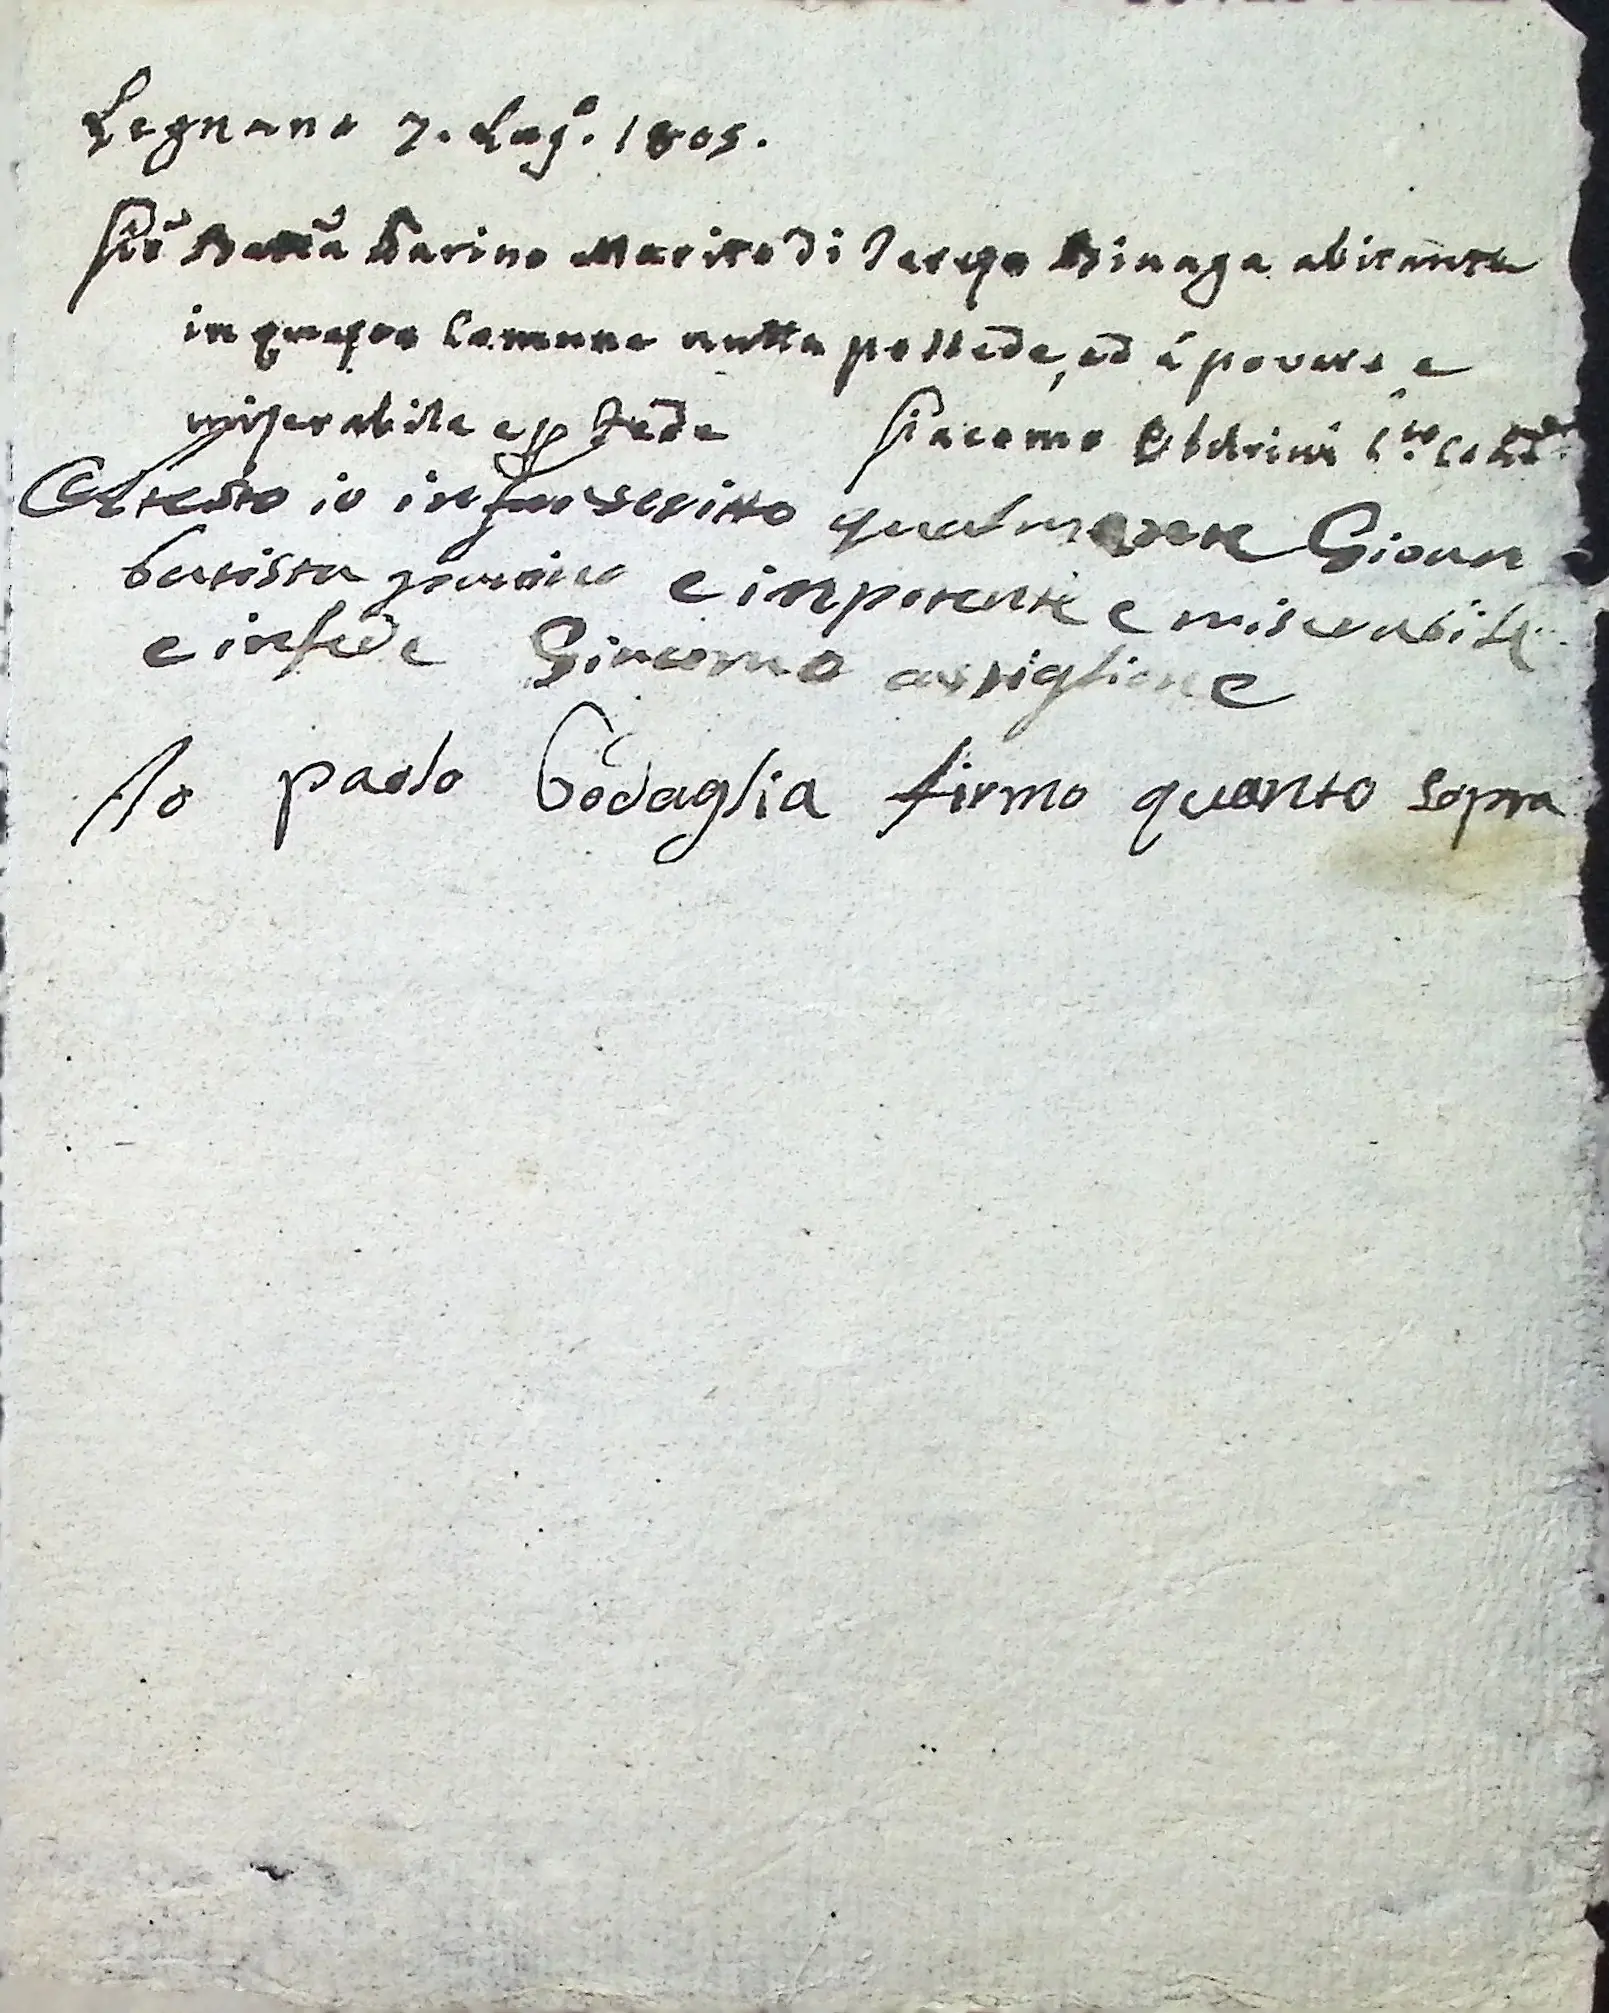 Legnano 7. Lug.º 1805.
Gio Batta Parino Marito di Teresa Binaga abitante
in questo Comune nulla possede, ed é povero e
miserabile e p fede Giacomo Oldrini
Attesto io infrascritto qualmente Gioan
batista parino e inpotente e miserabile
e in fede Giacomo
Io paolo Bodaglia firmo quanto sopra